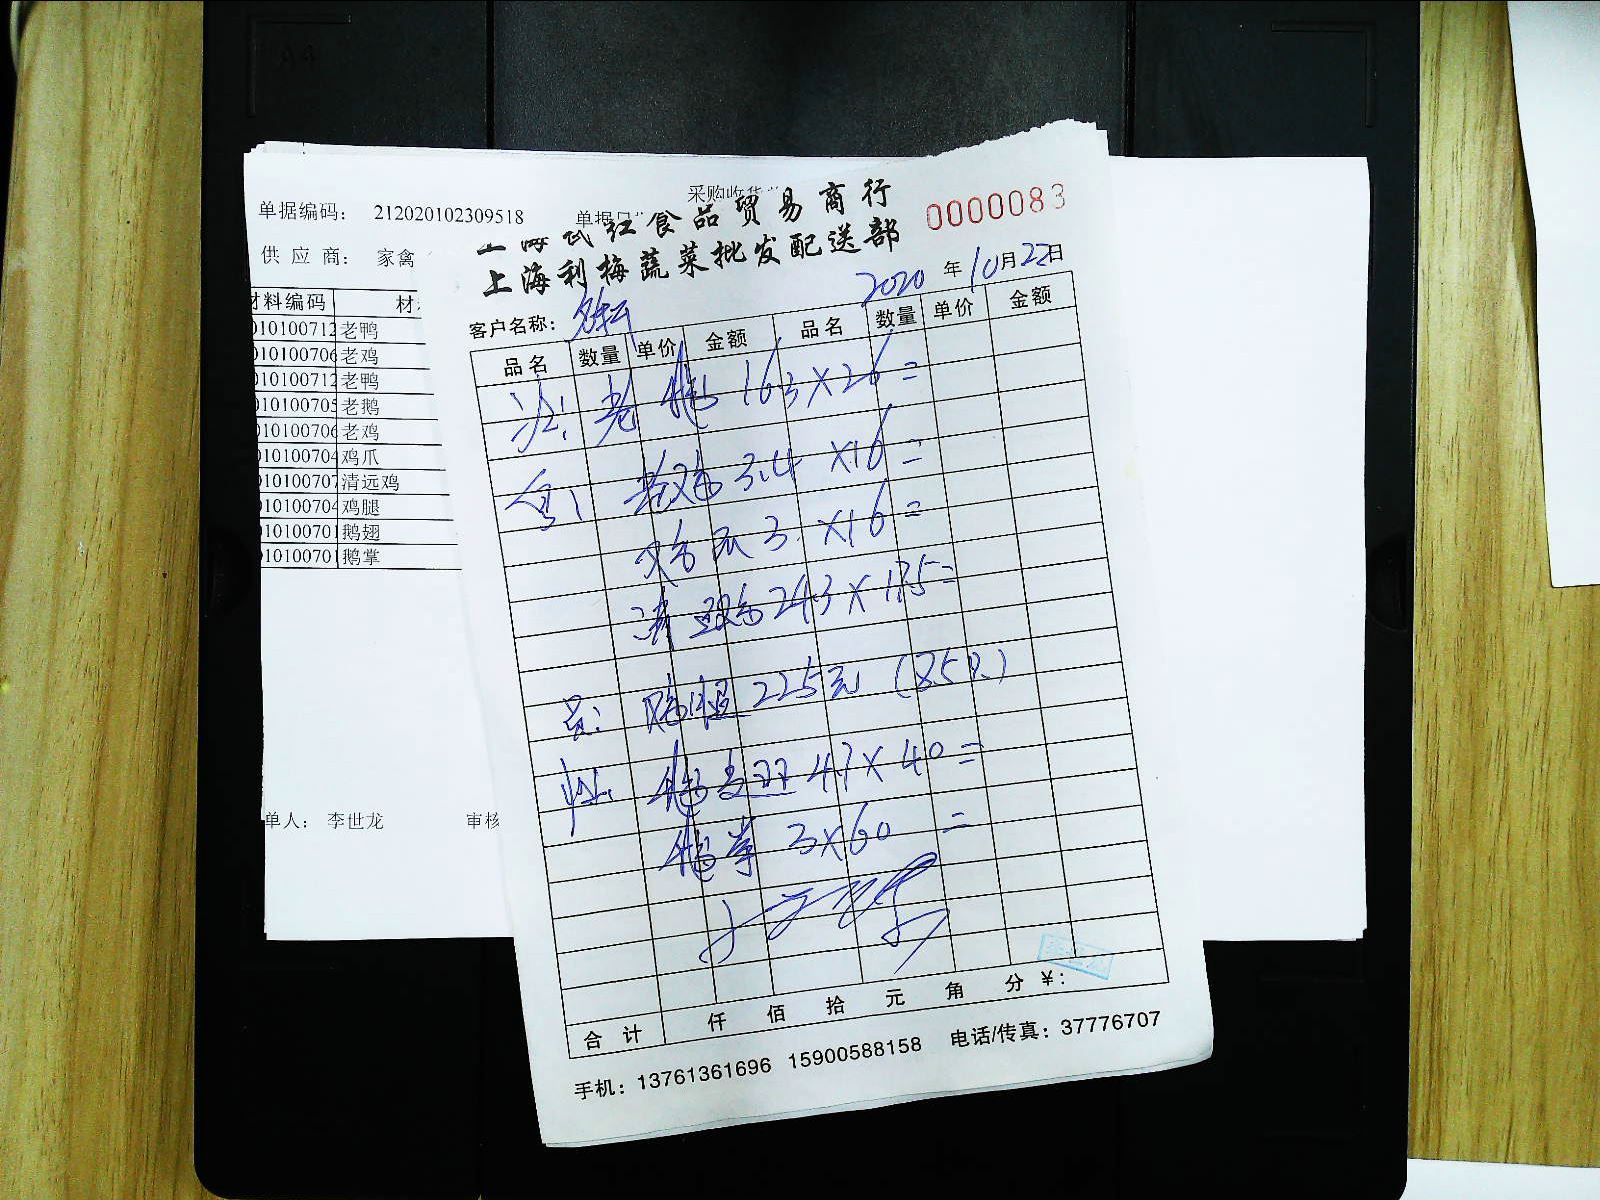 采购收货
单据编码： 212020102309518 单据日
供 应 商： 家禽
材料编码 材
010100712 老鸭
010100706 老鸡
010100712 老鸭
010100705 老鹅
010100706 老鸡
010100704 鸡爪
010100707 清远鸡
010100704 鸡腿
010100701 鹅翅
010100701 鹅掌
单人： 李世龙 审核
上海 红食品贸易商行
0000083
上海利梅蔬菜批发配送部
2020 年 10 月 22 日
客户名称：
品名 数量 单价 金额 品名 数量 单价 金额
老鹅 16.3×26=
老鸡 3.4 ×16=
鸡爪 3. ×16=
清远鸡 24.3×17.5=
鸡腿 225元
鹅翅 4.7×40=
鹅掌 3×60 =
合计 仟 佰 拾 元 角 分 ¥：
手机：13761361696 15900588158 电话/传真：37776707